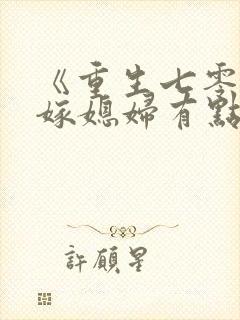 《重生七零
嫁媳婦有點
許願星